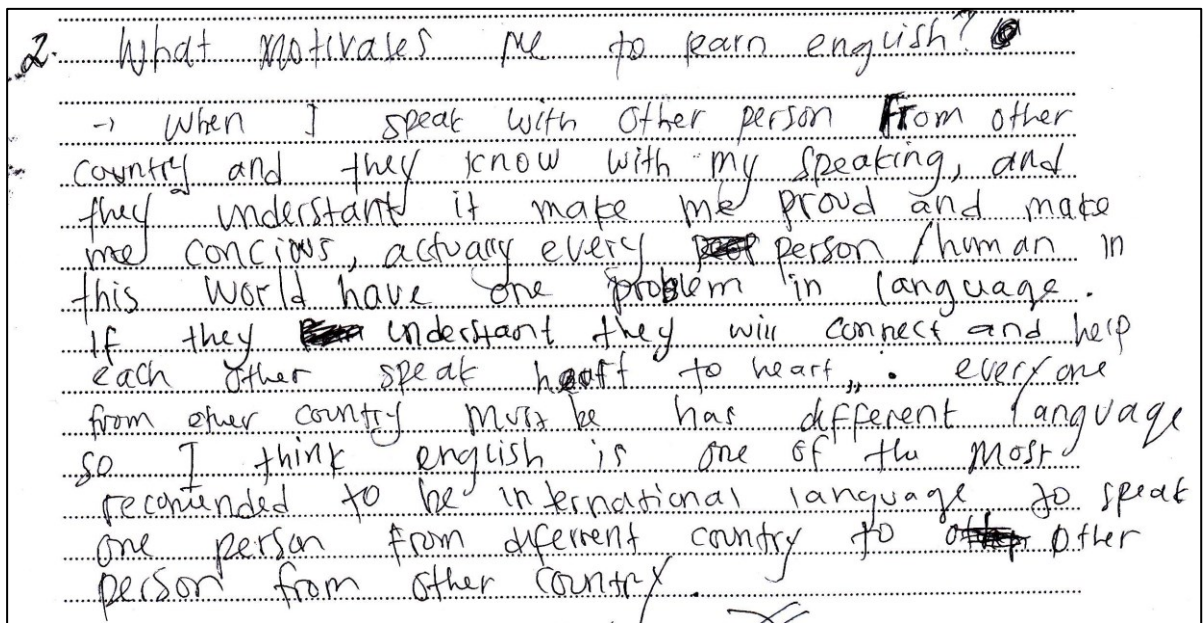 2. What motivates me to learn english?
→ When I speak with other person From other
country and they know with my speaking, and
they understant it make me proud and make
me concious, actually every person / human in
this world have one problem in language.
If they understant they will connect and help
each other speak heart to heart,, . everyone
from other country must be has different language
so I think english is one of the most
recomended to be international language to speak
one person from diferrent country to other
person from other country.